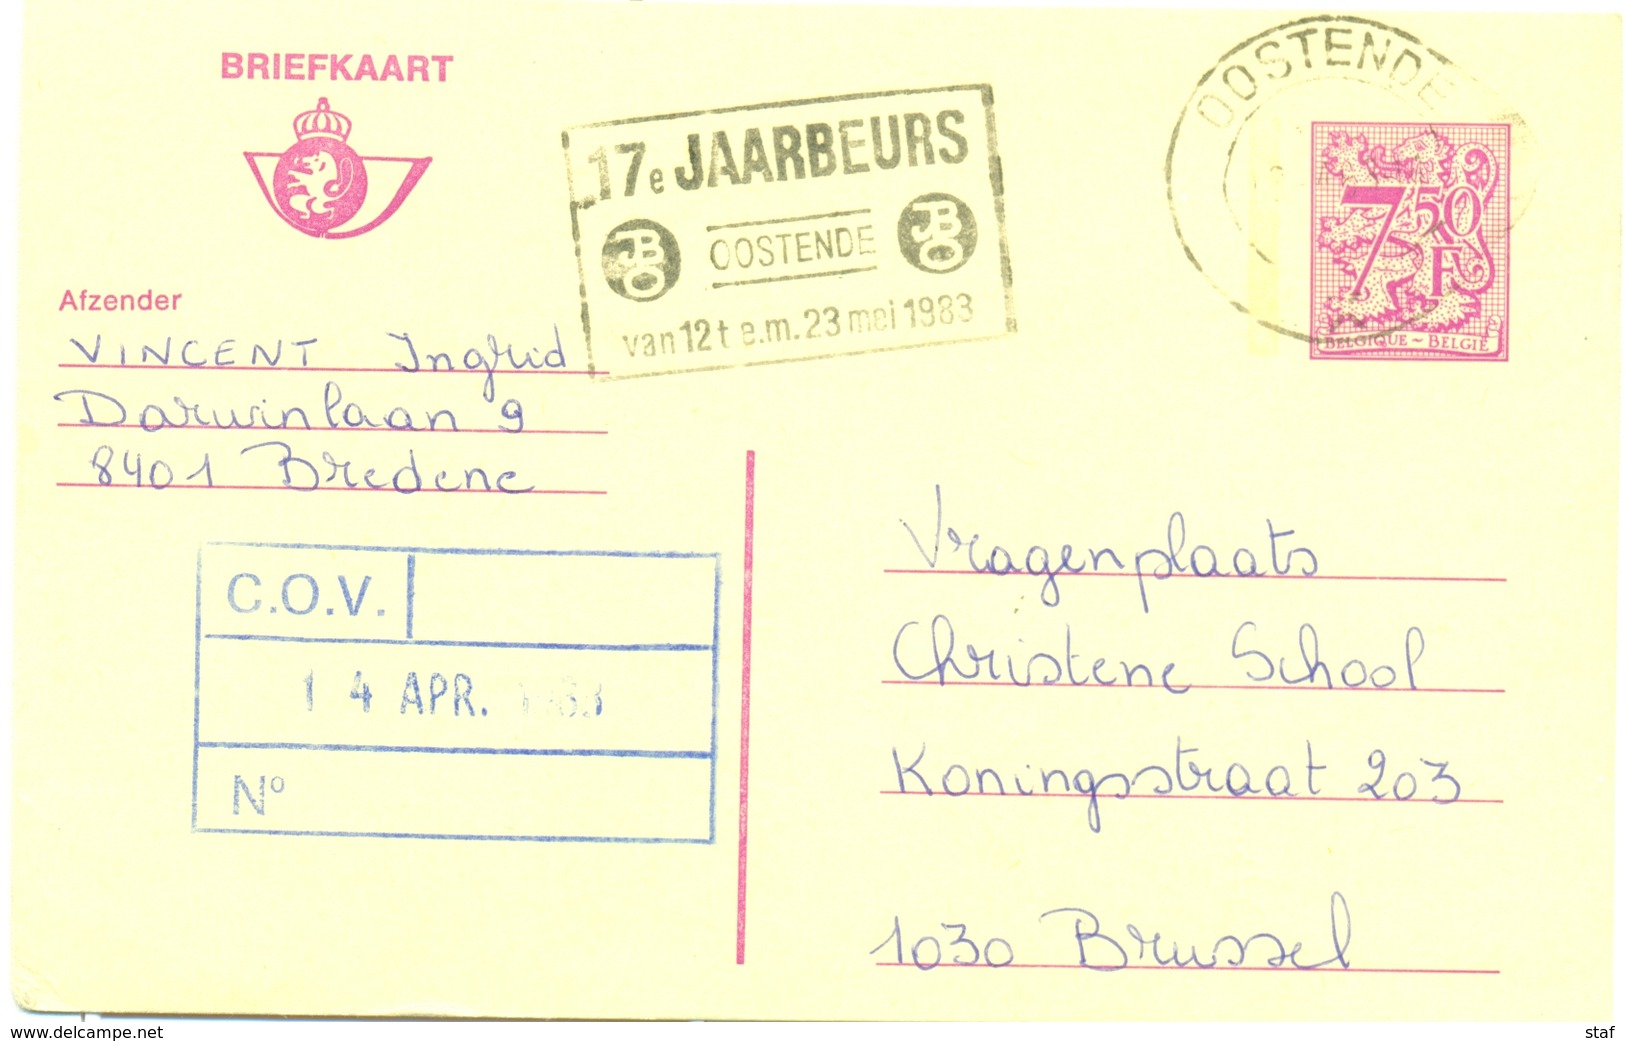 BRIEFKAART
17e JAARBEURS
JBO OOSTENDE JBO
van 12 t e.m. 23 mei 1983
OOSTENDE
7,50
F
BELGIQUE ~ BELGIË
Afzender
VINCENT Ingrid
Darwinlaan 9
8401 Bredene
C.O.V.
14 APR. 1983
Nº
Vragenplaats
Christene School
Koningsstraat 203
1030 Brussel
www.delcampe.net
staf